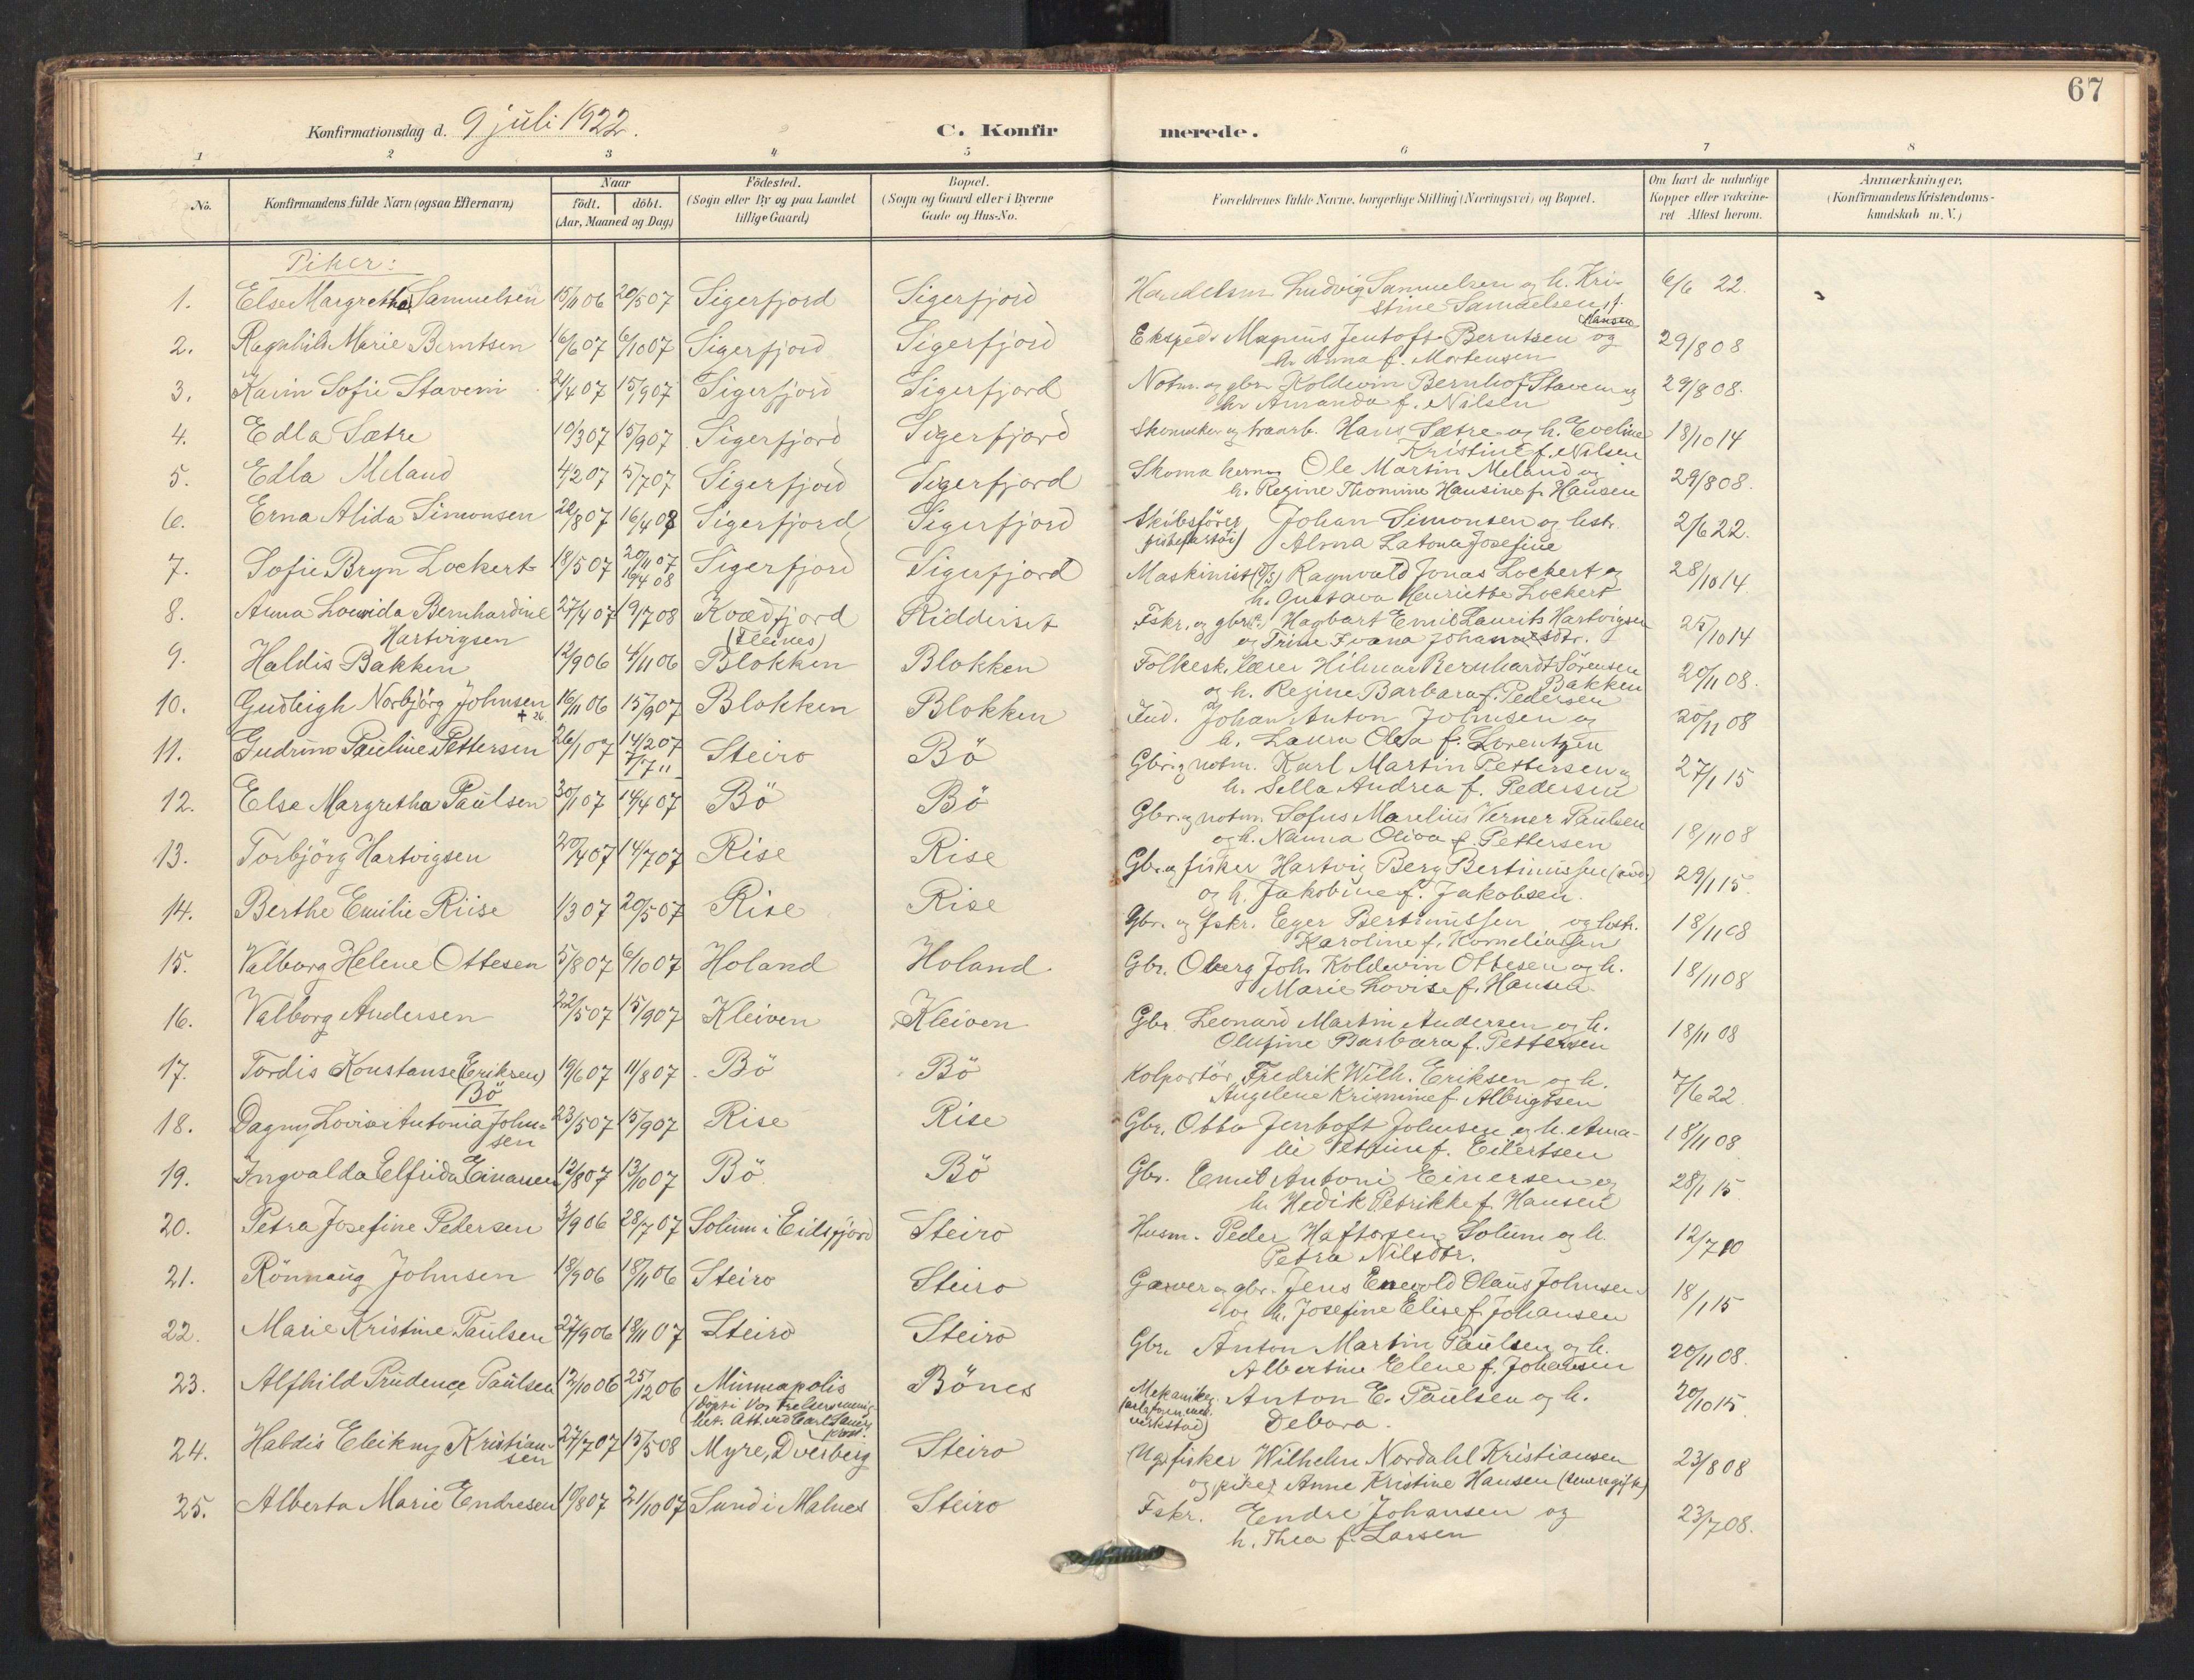 67
Konfirmationsdag d. 9 juli 1922.
C. Konfirmerede.
1 2 3 4 5 6 7 8
No.
Konfirmandens fulde Navn (ogsaa Efternavn)
Naar
födt. döbt.
(Aar, Maaned og Dag)
Födested.
(Sogn eller By og paa Landet
tillige Gaard)
Bopæl.
(Sogn og Gaard eller i Byerne
Gade og Hus-No.
Forældrenes fulde Navne, borgerlige Stilling (Næringsvei) og Bopæl.
Om havt de naturlige
Kopper eller vakcine-
ret Attest herom.
Anmærkninger.
(Konfirmandens Kristendoms-
kundskab m. V.)
Piker:
1. Else Margretha Samuelsen 15/11 06 20/5 07 Sigerfjord Sigerfjord Handelsm Ludvig Samuelsen og h. Kri- 6/6 22.
stine Samuelsen f.
Hansen
2. Ragnhild Marie Berntsen 16/6 07 6/10 07 Sigerfjord Sigerfjord Eksped. Magnus Jentoft Berntsen og 29/8 08
h. Anna f. Mortensen
3. Karin Sofie Stavem 21/4 07 15/9 07 Sigerfjord Sigerfjord Notm. og gbr. Koldevin Bernhof Stavem og 29/8 08.
h. Amanda f. Nilsen
4. Edla Sætre 10/3 07 15/9 07 Sigerfjord Sigerfjord Skomaker og tranrb. Hans Sætre og h. Eveline 18/10 14
Kristine f. Nilsen
5. Edla Meland 4/2 07 5/7 07 Sigerfjord Sigerfjord Skoma kerm. Ole Martin Meland og 29/8 08.
h. Regine Thomine Hansine f. Hansen
6. Erna Alida Simonsen 22/8 07 16/4 08 Sigerfjord Sigerfjord Skibsförer Johan Simonsen og hstr. 2/6 22.
Alma Latona Josefine
7. Sofie Bryn Lockert 18/5 07 20/11 07 Sigerfjord Sigerfjord Maskinist (D/S) Ragnvald Jonas Lockert og 28/10 14
16/4 08
h. Gustava Henriette Lockert
8. Anna Lovida Bernhardine 27/4 07 19/7 08 Kvædfjord Ridderset Fskr. og gbr. Hagbart Emil Laurits Hartvigsen 25/10 14
Hartvigsen
(Fleines)
og Trine Ivana Johannesdtr.
9. Haldis Bakken 12/9 06 4/11 06 Blokken Blokken Folkesk. lærer Hilmar Bernhardt Sörensen 20/11 08.
Bakken
og h. Regine Barbara f. Pedersen
10. Gudleigh Norbjörg Johnsen 16/11 06 15/9 07 Blokken Blokken Ind. Johan Anton Johnsen og 20/11 08
+ 26
h. Laura Olea f. Lorentzen
11. Gudrun Pauline Pettersen 26/1 07 14/2 07 Steiro Bö Gbr. og notm. Karl Martin Pettersen og 27/1 15
7/7 11
h. Sella Andrea f. Pedersen
12. Else Margretha Paulsen 30/1 07 14/4 07 Bö Bö Gbr. og notm. Sofus Marelius Verner Paulsen 18/11 08
og h. Nanna Oliva f. Pettersen
13. Torbjörg Hartvigsen 20/4 07 14/7 07 Rise Rise Gbr. og fisker Hartvig Berg Bertinussen (död) 29/1 15.
og h. Jakobine f. Jakobsen.
14. Berthe Emilie Riise 1/3 07 20/5 07 Rise Rise Gbr. og fskr. Eger Bertinussen og hstr. 18/11 08
Karoline f. Korneliussen
15. Valborg Helene Ottesen 5/8 07 6/10 07 Holand Holand Gbr. Oberg Joh. Koldevin Ottesen og h. 18/11 08
Marie Lovise f. Hansen
16. Valborg Andersen 22/5 07 15/9 07 Kleiven Kleiven Gbr. Leonard Martin Andersen og h. 18/11 08
Olufine Barbara f. Pettersen
17. Tordis Konstanse (Eriksen) 19/6 07 11/8 07 Bö Bö Kolportör Fredrik Wilh. Eriksen og h. 7/6 22
Bö
Angelena Krismine f. Albrigtsen
18. Dagny Lovise Antonia John- 23/5 07 15/9 07 Rise Rise Gbr. Otto Jentoft Johnsen og h. Ama- 18/11 08
sen
lie Petrine f. Eilertsen
19. Ingvalda Elfrida Einarsen 12/8 07 13/10 07 Bö Bö Gbr. Emil Antoni Einersen og 28/1 15.
h. Hedik Petrikke f. Hansen
20. Petra Josefine Pedersen 3/9 06 28/7 07 Solum i Eidsfjord Steiro Husm. Peder Haftorsen Solum og h. 12/7 10
Petra Nilsdtr.
21. Rönnaug Johnsen 18/9 06 18/11 06 Steiro Steiro Garver og gbr. Jens Enevold Olaus Johnsen 18/1 15
og h. Josefine Elise f. Johansen
22. Marie Kristine Paulsen 27/9 06 18/11 07 Steiro Steiro Gbr. Anton Martin Paulsen og h. 20/11 08.
Albertine Elene f. Johansen
23. Alfhild Prudence Paulsen 12/10 06 25/12 06 Minneapolis Bönes Mekaniker Anton E. Paulsen og h. 20/10 15.
(Döpt i Vor Frelsers menig-
het. Att. ved Carl
verkstad) Debora.
24. Haldis Eleikny Kristian- 27/7 07 15/5 08 Myre, Dverberg Steiro Ug. fisker Wilhelm Nordahl Kristiansen 23/8 08
sen
og pike Anne Kristine Hansen (senere gift)
25. Alberta Marie Endresen 10/8 07 21/10 07 Sund i Malnes Steiro Fskr. Endre Johansen og 23/7 08.
h. Thea f. Larsen